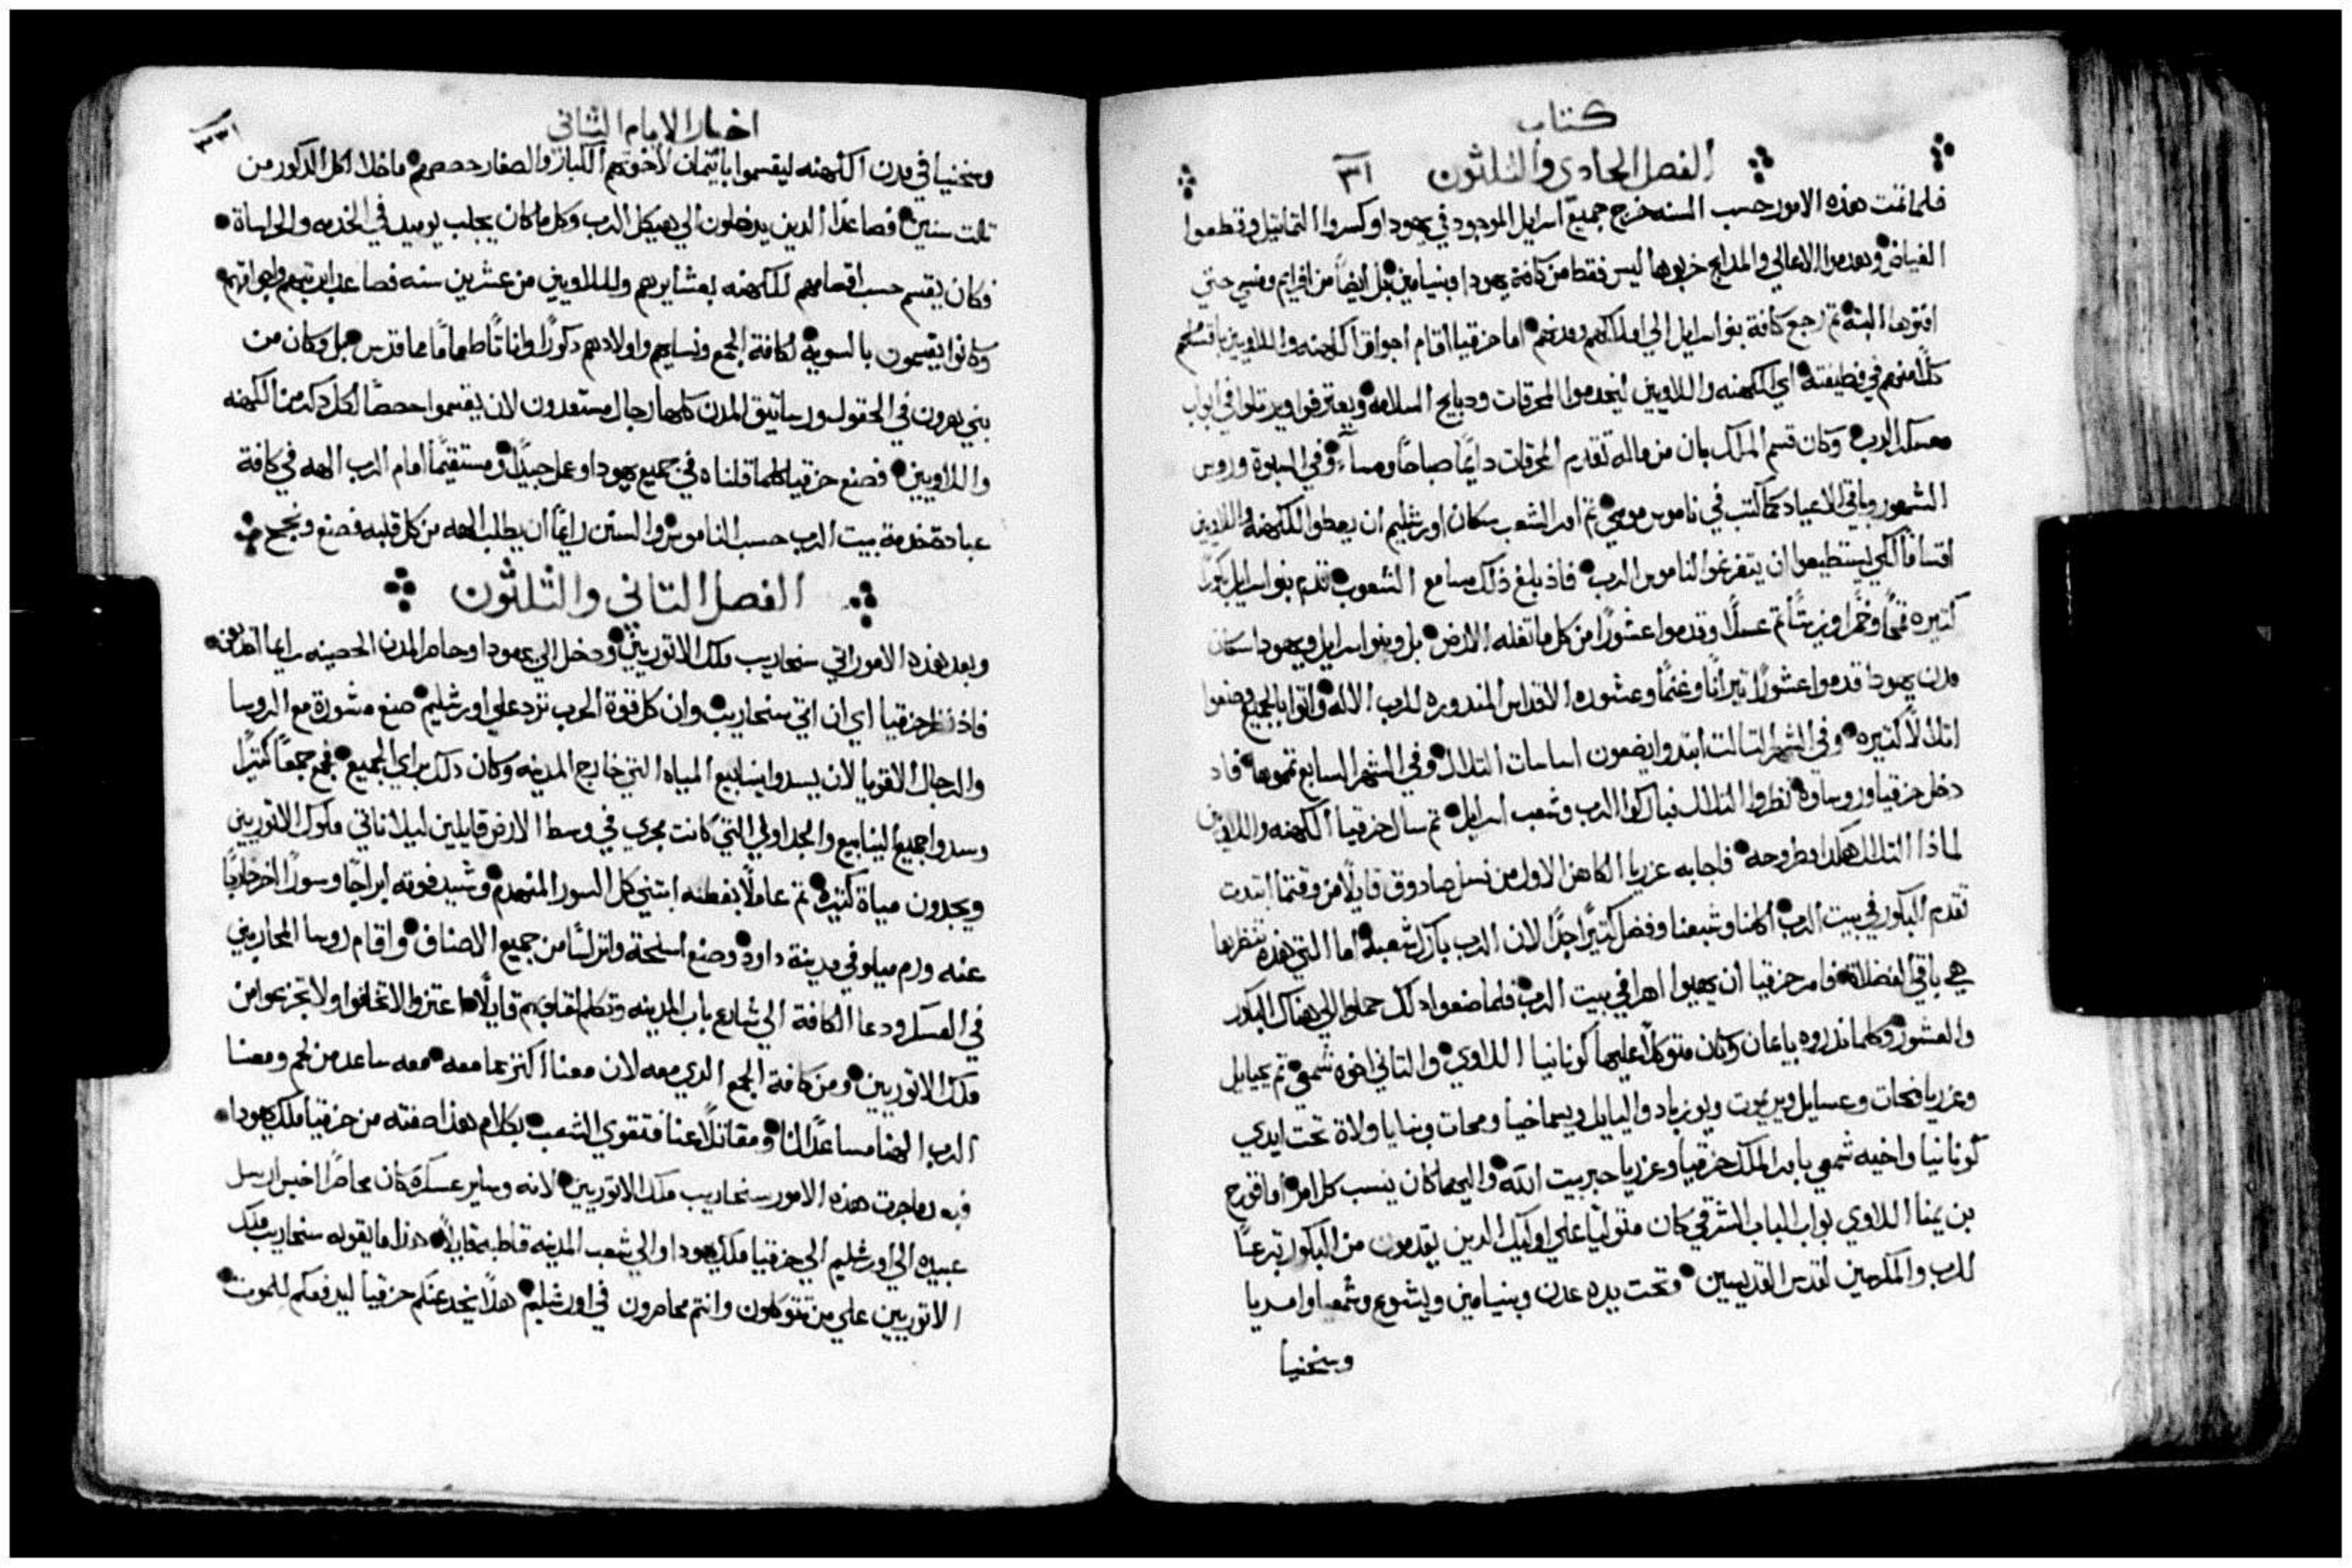 كتاب
الفصل الحادي والثلثون ٣١
فلما تمت هذه الامور حسب السنه خرج جميع اسرايل الموجود في يهودا وكسروا التماثيل وقطعوا
الغياض وهدموا الاعالي والمدابح خربوها ليس فقط من كافة يهودا وبنيامين بل ايضاً من افرايم ومنسي حتي
افنوها البتة تم رجع كافة بنو اسرايل الي املاكهم ومدنهم اما حزقيا اقام اجواق الكهنه واللاويين باقسامهم
كلاً منهم في وظيفته اي الكهنه واللاويين ليخدموا المحرقات ودبايح السلامه ويعترفوا ويرتلوا في ابواب
معسكر الرب وكان قسم الملك بان من ماله تقدم المحرقات دايماً صباحاً ومساءً وفي السبوة وروس
الشهور وباقي الاعياد كما كتب في ناموس موسي تم امر الشعب سكان اورشليم ان يعطوا الكهنه واللاويين
اقساماً لكي يستطيعوا ان يتفرغوا لناموس الرب فاذ بلغ ذلك مسامع الشعوب قدم بنو اسرايل بكوراً
كتيره قمحاً وخمراً وزيتاً تم عسلاً وقدموا عشوراً من كل ما تغله الارض بل وبنو اسرايل ويهودا سكان
مدن يهودا قدموا عشوراً تيراناً وغنماً وعشور الاقداس المندوره للرب الاله واتوا بالجميع وصنعوا
اتلالاً كتيره وفي الشهر التالت ابتدوا يضعون اساسات التلال وفي الشهر السابع تموها فاد
دخل حزقيا وروساوه نظروا التلال فباركوا الرب وشعب اسرايل تم سال حزقيا الكهنه واللاويين
لماذا التلال هكدا مطروحه فاجابه عزريا الكاهن الاول من نسل صادوق قايلاً من وقتما ابتدت
تقدم البكور في بيت الرب اكلنا وشبعنا وفضل كتيراً جداً لان الرب بارك شعبه اما التي هذه تنظرها
هي باقي الفضلات فامر حزقيا ان يهيوا اهرا في بيت الرب فلما صنعوا دلك حملوا الي هناك البكور
والعشور وكلما نذروه بايمان وكان متوكلاً عليها كونانيا اللاوي والتاني اخوه شمعي تم يحيايل
وعزريا ونحات وعسايل ويريموت ويوزباد واليايل ويسماخيا ومحات وبنايا ولاة تحت ايدي
كونانيا واخيه شمعي بامر الملك حزقيا وعزريا حبر بيت الله واليهما كان ينسب كل امر اما قورح
بن يمنا اللاوي بواب الباب الشرقي كان متولياً علي اوليك الدين يقدمون من البكور تبرعاً
للرب والمكرمين لقدس القديسين وتحت يده عدن وبنيامين ويشوع وشمعيا وامريا
وسخنيا
اخبار الايام التاني
وسخنيا في مدن الكهنه ليقسموا بايتمان لاخوتهم الكبار والصغار حصصهم ما خلا اكل الدكور من
تلت سنين فصاعداً الدين يدخلون الي هيكل الرب وكل ما كان يجلب يوميد في الخدمه والحراساة
فكان يقسم حسب اقسامهم للكهنه بعشايرهم ولللاويين من عشرين سنه فصاعد
وكانوا يقسمون بالسوية لكافة الجمع ونسايهم واولادهم دكوراً واناتاً طعاماً مما قدس بل وكان من
بني هرون في الحقول ورساتيق المدن كلها رجال مستعدون لان يقسموا حصصاً لكل دكر من الكهنه
واللاويين فصنع حزقيا كلما قلناه في جميع يهودا وعمل جيداً ومستقيماً امام الرب الهه في كافة
عبادة خدمة بيت الرب حسب الناموس والسنن رايماً ان يطلب الهه من كل قلبه فصنع ونجح
الفصل التاني والتلثون
وبعد هذه الامور اتي سنحاريب ملك الاتوريين ودخل الي يهودا وحاصر المدن الحصينه
فاذ نظر حزقيا اي ان اتي سنحاريب وان كل قوة الحرب ترد علي اورشليم صنع مشورة مع الروسا
والرجال الاقويا لان يسدوا ينابيع المياه التي خارج المدينه وكان دلك براي الجميع فجمع جمعاً كتيراً
وسدوا جميع الينابيع والجداول التي كانت تجري في وسط الارض قايلين ليلا تاتي ملوك الاتوريين
ويجدون مياة كتيره تم عاملاً بفطنه ابتني كل السور المنهدم وشيد فوقه ابراجاً وسوراً اخر خارجاً
عنه ورم ميلو في مدينة داود وصنع اسلحة واتراساً من جميع الاصناف واقام روسا المحاربين
في العسكر ودعا الكافة الي شارع باب المدينه وتكلم لقلوبهم قايلاً اعتزوا لا تخافوا ولا تجزعوا من
ملك الاتوريين ومن كافة الجمع الدي معه لان معنا اكتر مما معه معه ساعد من لحم ومعنا
الرب الهنا مساعداً لنا ومقاتلاً عنا فتقوي الشعب بكلام هذا صفته من حزقيا ملك يهودا
فبعد ما جرت هذه الامور سنحاريب ملك الاتوريين لانه وساير عسكره كان محاصراً لاخيس ارسل
عبيده الي اورشليم الي حزقيا ملك يهودا والي شعب المدينه قاطبة قايلاً هذا ما يقوله سنحاريب ملك
الاتوريين علي من تتوكلون وانتم محاصرون في اورشليم هلا يخدعنكم حزقيا ليدفعكم للموت